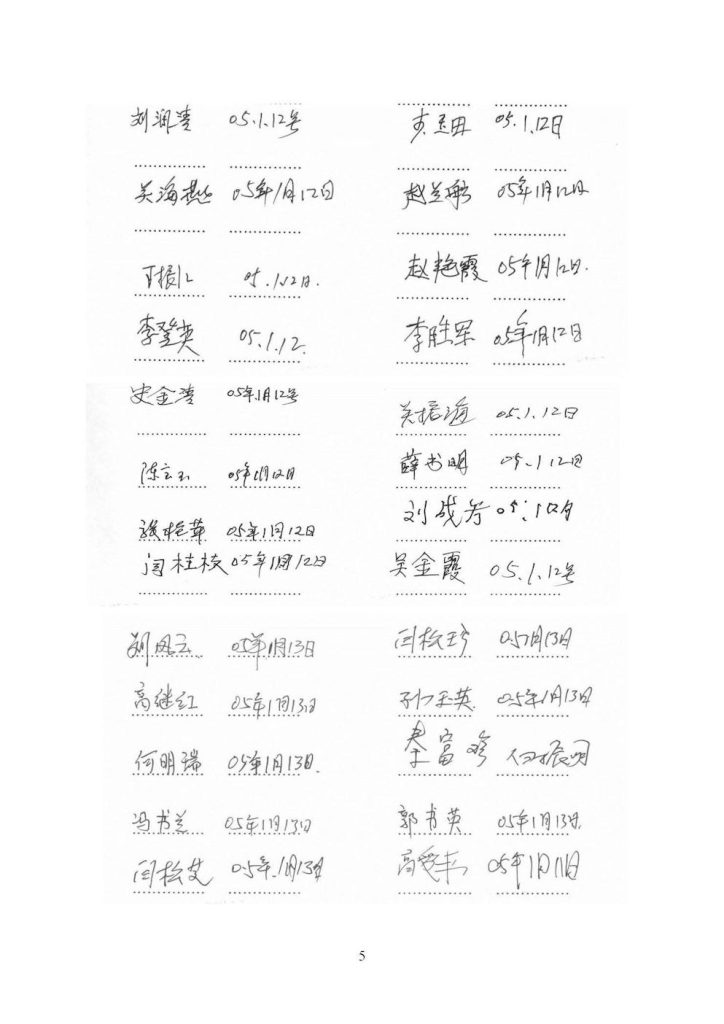 刘润清 05.1.12号 史玉田 05.1.12日
关海燕 05年1月12日 赵兰敏 05年1月12日
于振江 05.1.12日. 赵艳霞 05年1月12日.
李登英 05.1.12. 李胜军 05年1月12日
史金涛 05年1月12号 关振海 05.1.12日
陈立玉 05年1月12日 薛书明 05.1.12日
05年1月12日 刘成芳 05.1.12日
闫桂枝 05年1月12日 吴金霞 05.1.12号
刘凤云 05年1月13日 闫松珍 05.1月13日
高继红 05年1月13日 孙玉英 05年1月13日
何明瑞 05年1月13日. 秦富珍 何振明
冯书兰 05年1月13日 郭书英 05年1月13日.
闫松芝 05年.1月13日 高爱来 05年1月11日
5